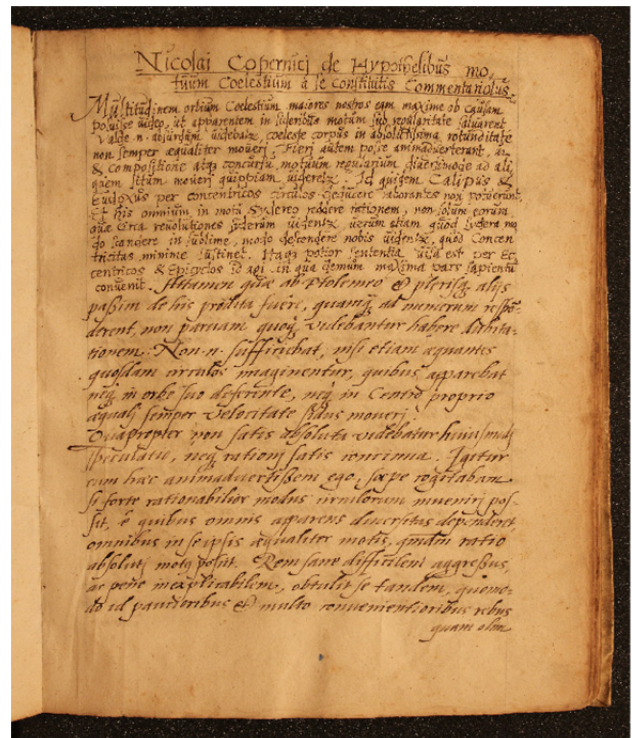 Nicolai Copernicj de Hypothesibus mo,
tuum Coelestium à se constitutis Commentariolus.
Multitudinem orbium Coelestium maiores nostros eam maxime ob causam
posuisse uideo, ut apparentem in sideribus motum sub regularitate saluarent
Valde .n. absurdum uidebatz, coeleste corpus in absolutissima rotunditate
non semper æqualiter moueri. Fieri autem posse animaduerterant, ut
& compositione atqz concursu motuum regularium diuersimode ad ali
quem situm moueri quippiam uideretz. Id quidem Calipus &
Eudoxus per concentricos circulos deducere laborantes non potuerunt,
Et his omnium in motu sydereo reddere rationem, non solum eorum
quæ circa reuolutiones siderum uidentz, uerum etiam quod sydera mo
do scandere in sublime, modo descendere nobis uidentz, quod Concen
tricitas minime sustinet. Itaqz potior sententia uisa est per Ec
centricos & Epicyclos id agi in qua demum maxima pars sapientū
conuenit. Attamen quæ ab Ptolemeo & plerisqz alijs
passim de his prodita fuere, quamqz ad numerum respō-
derent, non paruam quoqz videbantur habere dubita-
tionem. Non .n. sufficiebat, nisi etiam æquantes
quosdam circulos imaginentur, quibus apparebat
neqz in orbe suo deferente, neqz in Centro proprio
æquali semper velocitate sidus moueri.
Quapropter non satis absoluta videbatur huiusmodj
speculatio, neqz rationj satis concinna. Igitur
cum hæc animaduertissem ego, sæpe cogitabam
si forte rationabilior modus circulorum inueniri pos-
sit, è quibus omnis apparens diuersitas dependeret,
omnibus in se ipsis æqualiter motis, qmdm ratio
absoluti motq poscit. Rem sane difficilem aggressus,
ac pene inexplicabilem, obtulit se tandem, quomo-
do id paucioribus & multo conuenientioribus rebus
quam olim